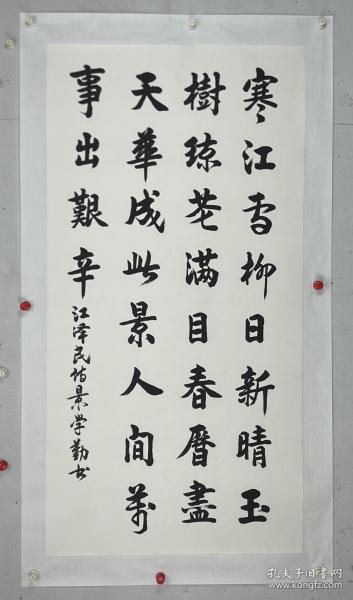 寒江雪柳日新晴玉
樹琼花满目春曆盡
天華成此景人間萬
事出艱辛
江泽民诗景学勤书
孔夫子旧书网
www.kongfz.com